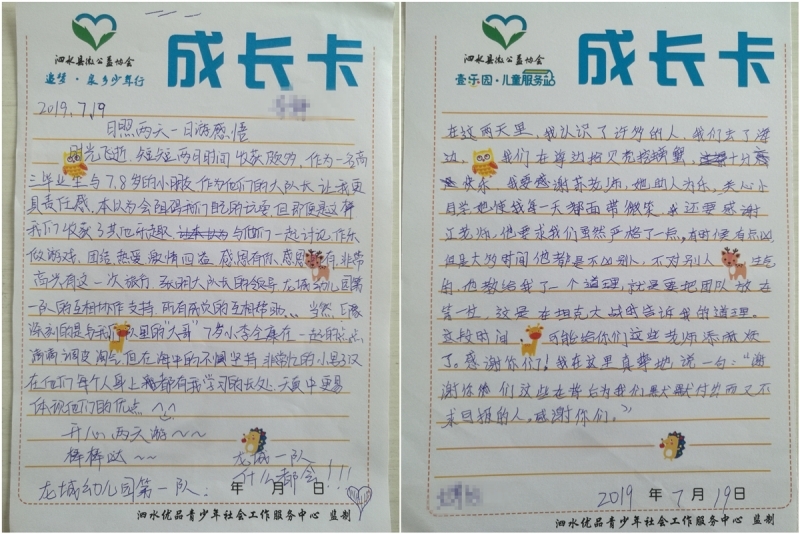 泗水县微公益协会
追梦·泉乡少年行
成长卡
2019.7.19
日照两天一日游感悟
时光飞逝,短短两日时间收获颇多,作为一名高
三毕业生与7.8岁的小朋友作为他们的大队长让我更
具责任感,本以为会阻碍我们自己的玩耍但即便是这样
我们收获了其他乐趣,与他们一起讨论作乐
做游戏,团结热爱激情四溢,感恩有你,感恩有,非常
高兴有这一次旅行 张明大队长的领导 龙城幼儿园第
一队的互相协作支持,所有成员的互相帮助、、当然印象
深刻的是与我队里的"大哥"7岁小李全在一起的点点
滴滴调皮淘气但在海中的不懈坚持 非常
在他们每个人身上都有我学习的长处.天真中更易
体现他们的优点
开心两天游~~
棒棒哒~~
龙城一队
什么都会!!!
龙城幼儿园第一队:
年 月 日
泗水优品青少年社会工作服务中心 监制
泗水县微公益协会
壹乐园·儿童服务站
成长卡
在这两天里,我认识了许多的人,我们去了海
边,我们在海边拾贝壳挖螃蟹,十分
快乐,我要感谢苏老师,她助人为乐,关心小
同学她使我每一天都面带微笑,我还要感谢
江老师,他要求我们虽然严格了一点,有时候有点凶
但是大多时间他都是不凶别人,不对别人生气
的,他教给我了一个道理,就是要把团队放在
第一位,这是在坦克大战我告诉我的道理。
这段时间可能给你们这些老师添麻烦
了。感谢你们!我在这里真挚地说一句:"谢
谢你们这些在背后为我们默默付出而又不
求回报的人,感谢你们。"
2019 年 7 月 19 日
泗水优品青少年社会工作服务中心 监制